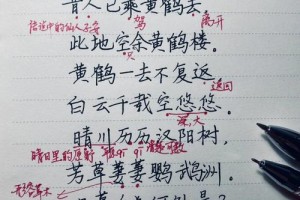 昔人已乘黄鹤去
悟道中的仙人子安 驾 离开
此地空余黄鹤楼。
只
黄鹤一去不复返
返回
白云千载空悠悠。
深,大
晴川历历汉阳树,
晴日里的原野 清晰可数
芳草萋萋鹦鹉洲。